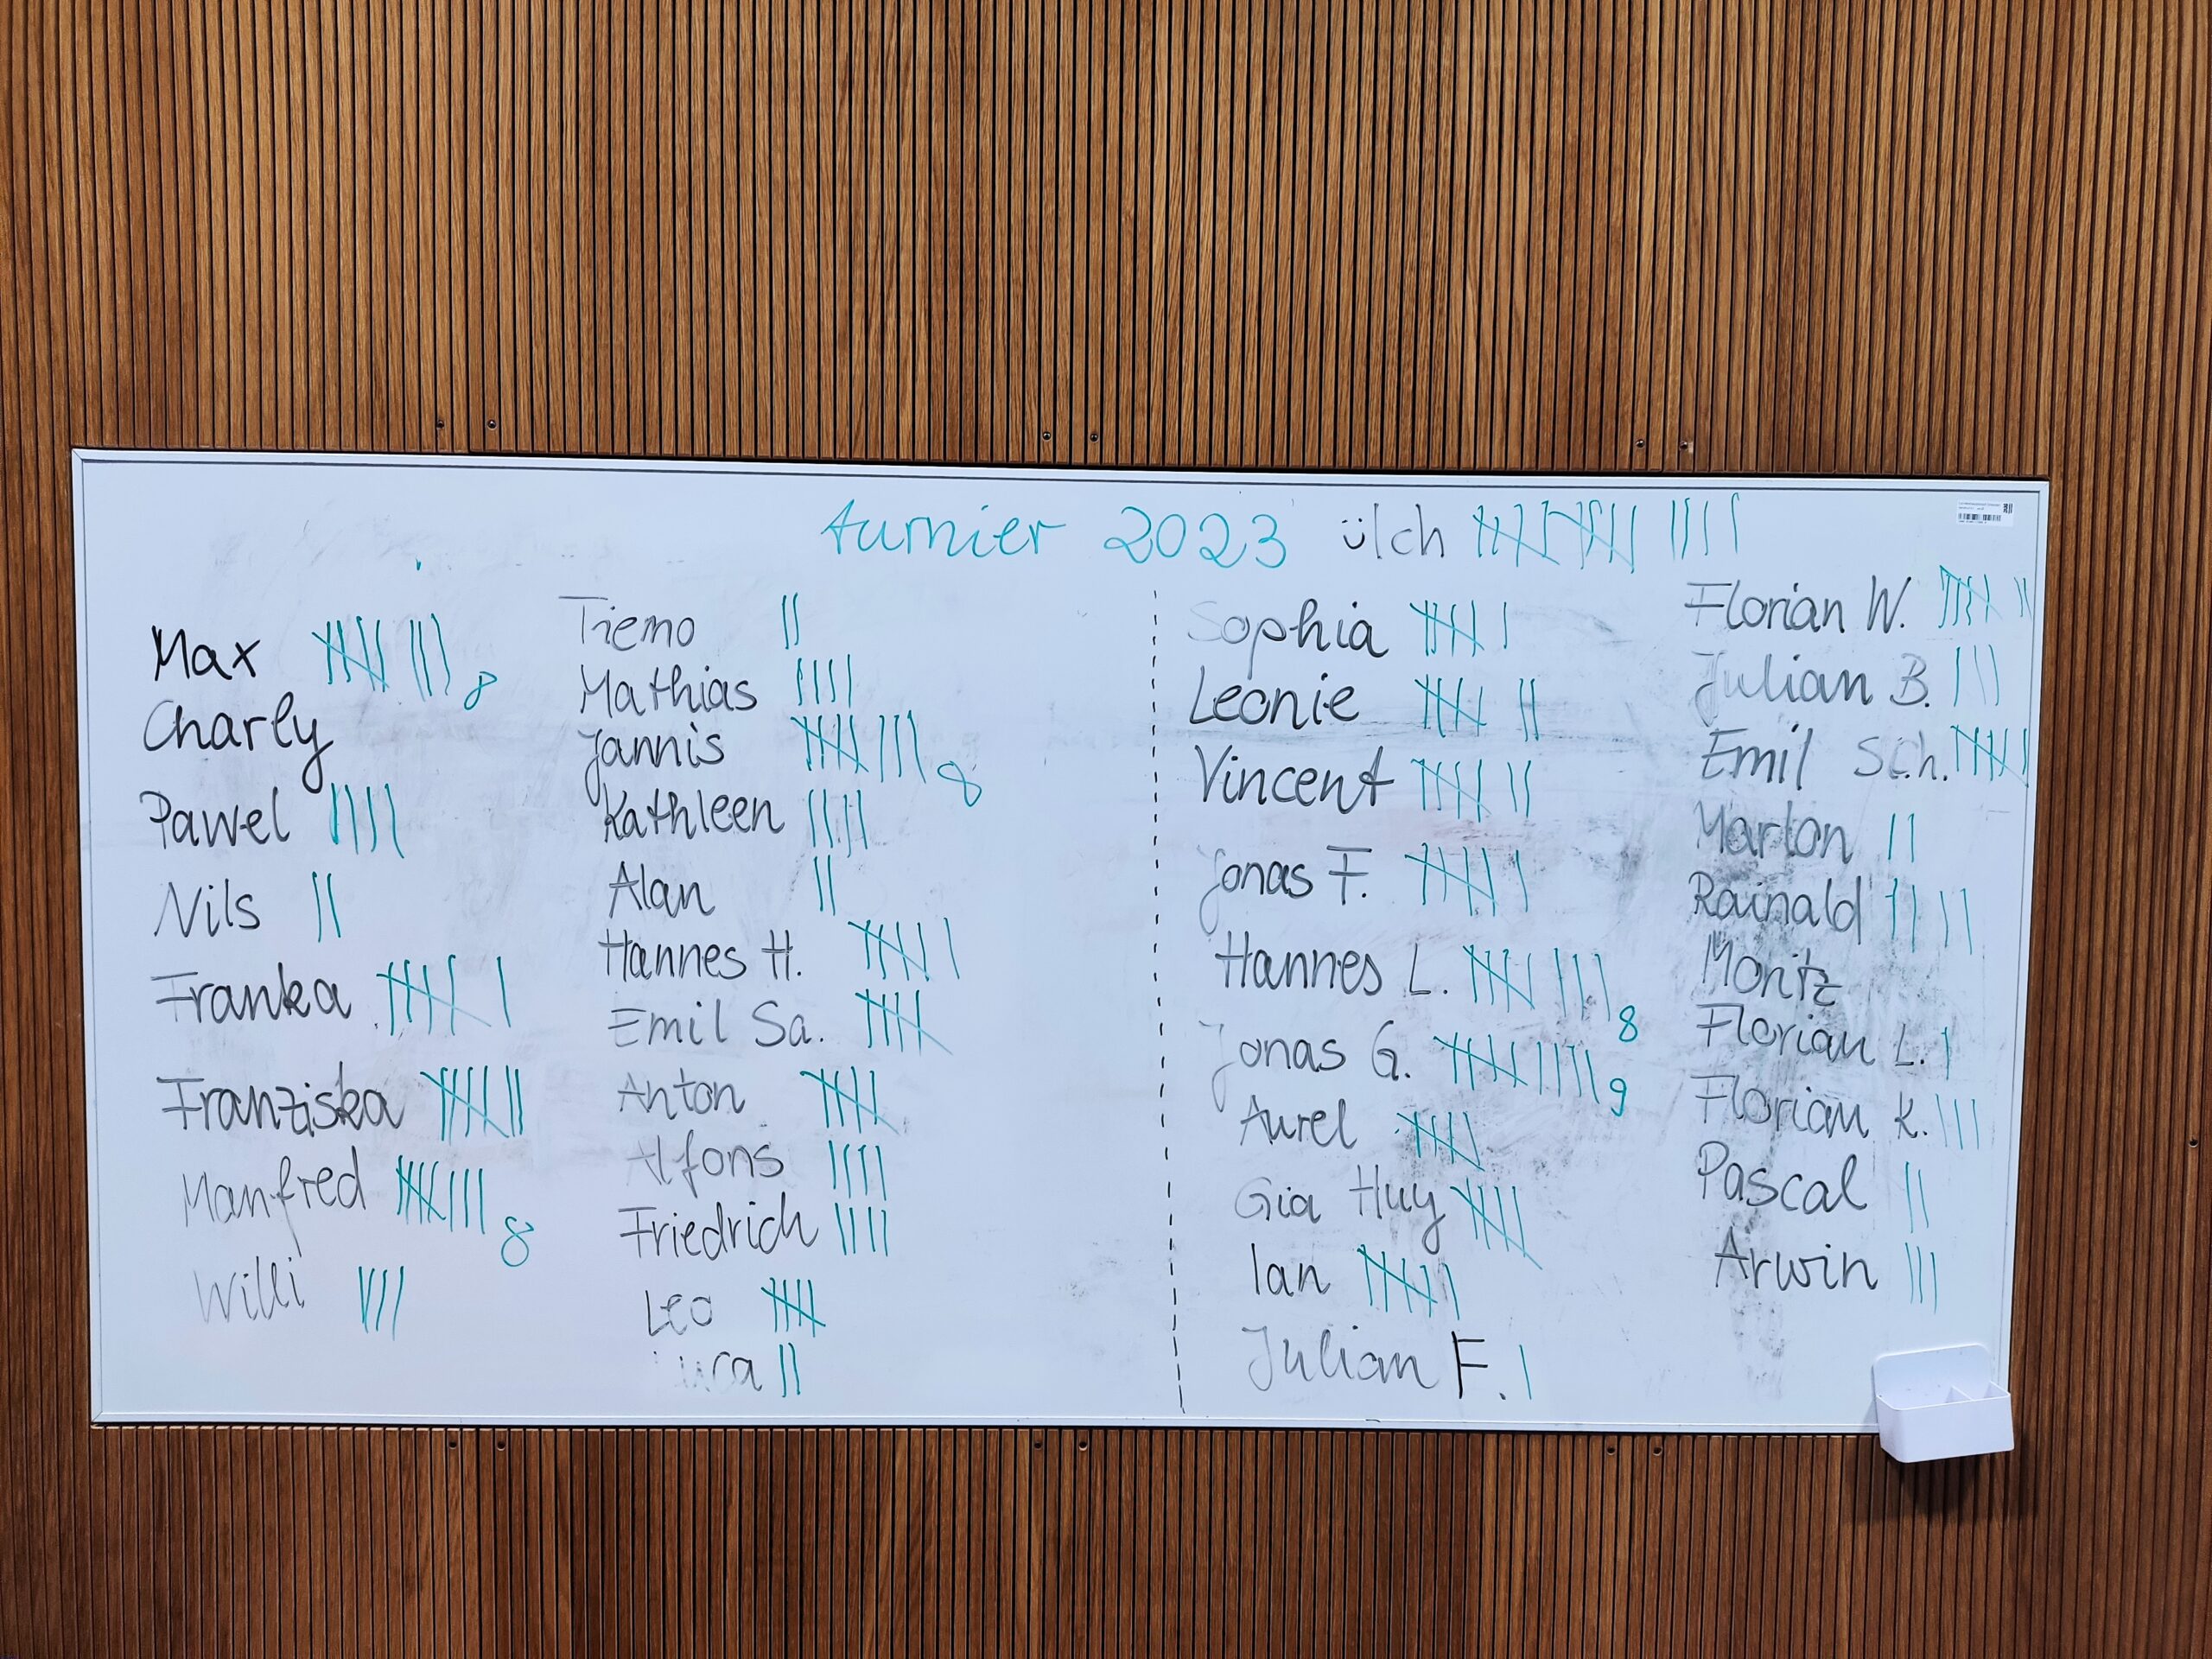 turnier 2023 üIch
Max 8
Charly
Pawel
Nils
Franka
Franziska
Manfred 8
Willi
Tiemo
Mathias
Jannis 8
Kathleen
Alan
Hannes H.
Emil Sa.
Anton
Alfons
Friedrich
Leo
Luca
Sophia
Leonie
Vincent
Jonas F.
Hannes L. 8
Jonas G. 9
Aurel
Gia Huy
Ian
Julian F.
Florian W.
Julian B.
Emil Sch.
Marlon
Rainald
Moritz
Florian L.
Florian K.
Pascal
Arwin